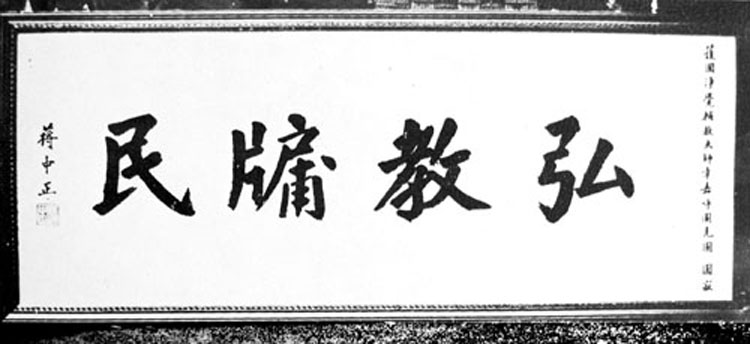 護國淨覺輔教大師章嘉呼圖克圖 圓寂
弘教牖民
蔣中正